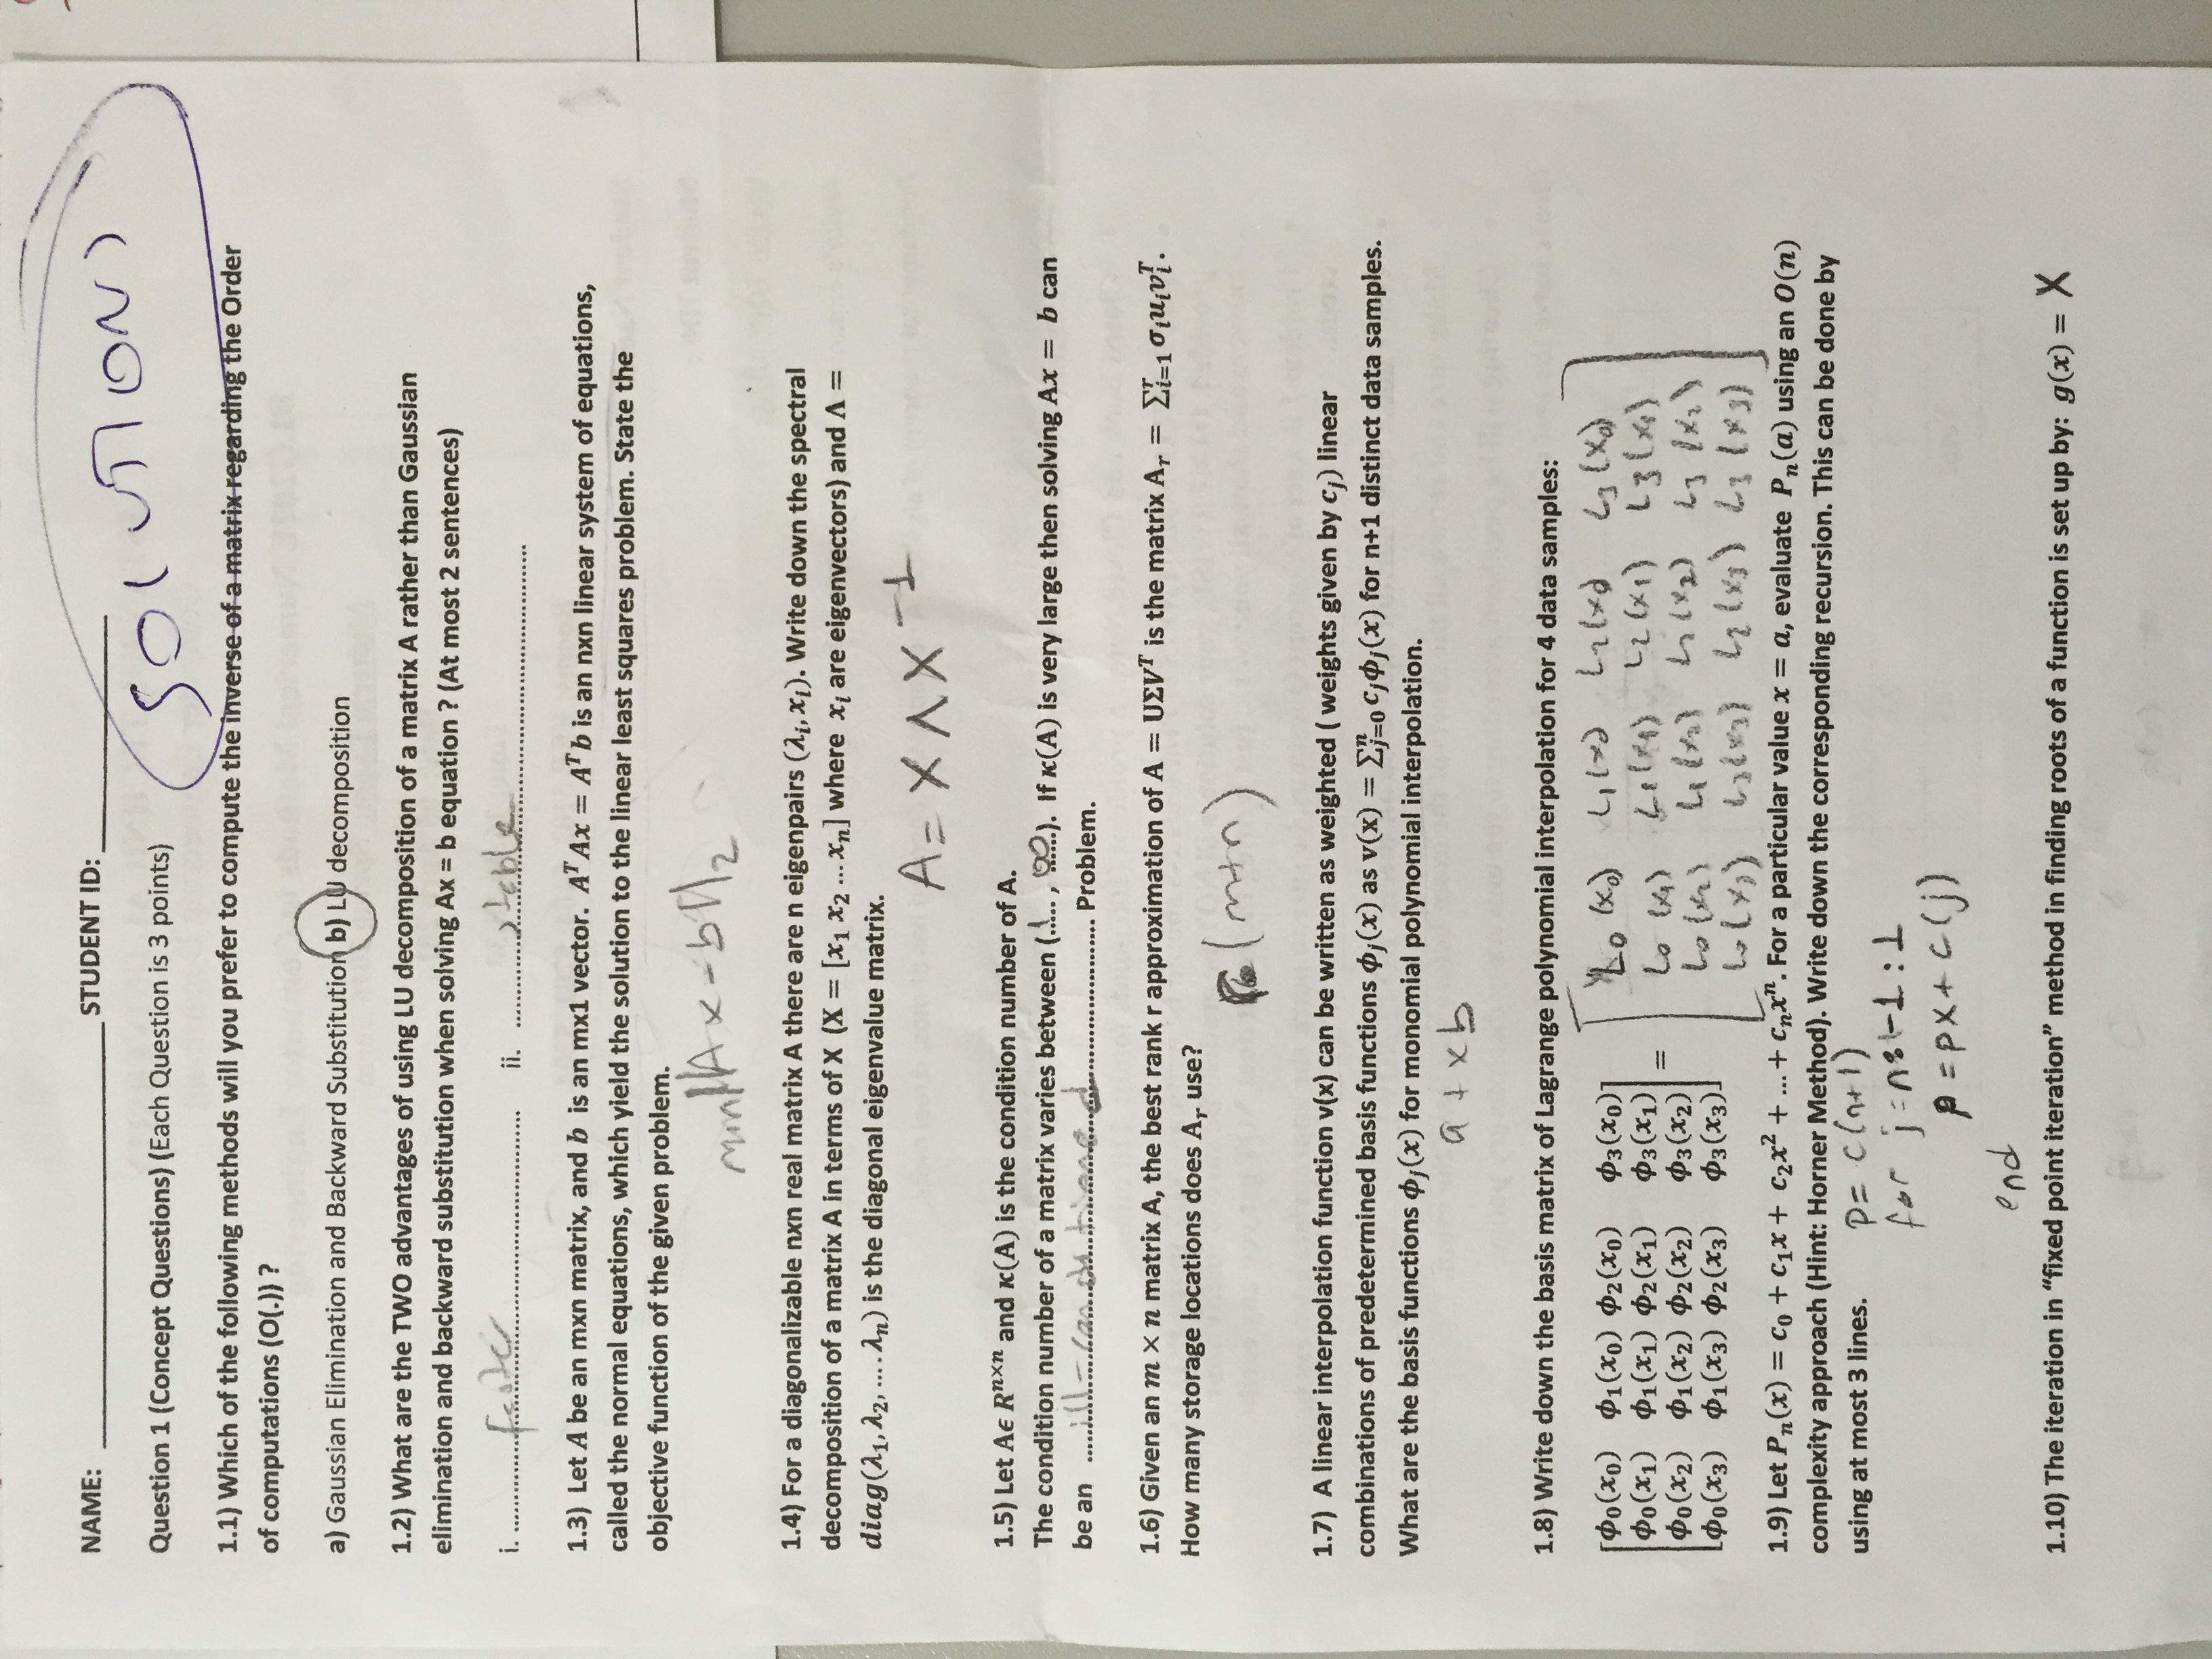 NAME: ____________ STUDENT ID: ____________
SOLUTIONS
Question 1 (Concept Questions) (Each Question is 3 points)
1.1) Which of the following methods will you prefer to compute the inverse of a matrix regarding the Order
of computations (O(.)) ?
a) Gaussian Elimination and Backward Substitution b) LU decomposition
1.2) What are the TWO advantages of using LU decomposition of a matrix A rather than Gaussian
elimination and backward substitution when solving Ax = b equation ? (At most 2 sentences)
i. faster ii. stable
1.3) Let A be an mxn matrix, and b is an mx1 vector. AᵀAx = Aᵀb is an nxn linear system of equations,
called the normal equations, which yield the solution to the linear least squares problem. State the
objective function of the given problem.
min||Ax-b||₂
1.4) For a diagonalizable nxn real matrix A there are n eigenpairs (λᵢ, xᵢ). Write down the spectral
decomposition of a matrix A in terms of X (X = [x₁ x₂ ... xₙ] where xᵢ are eigenvectors) and Λ =
diag(λ₁, λ₂, .... λₙ) is the diagonal eigenvalue matrix.
A = X Λ X⁻¹
1.5) Let Aϵ Rⁿˣⁿ and κ(A) is the condition number of A.
The condition number of a matrix varies between (..1.. , ..∞..). If κ(A) is very large then solving Ax = b can
be an ill-conditioned Problem.
1.6) Given an m × n matrix A, the best rank r approximation of A = UΣVᵀ is the matrix Aᵣ = Σʳᵢ₌₁ σᵢuᵢvᵢᵀ.
How many storage locations does Aᵣ use?
(m+n)
1.7) A linear interpolation function v(x) can be written as weighted ( weights given by cⱼ) linear
combinations of predetermined basis functions ϕⱼ(x) as v(x) = Σⁿⱼ₌₀ cⱼϕⱼ(x) for n+1 distinct data samples.
What are the basis functions ϕⱼ(x) for monomial polynomial interpolation.
a + xb
1.8) Write down the basis matrix of Lagrange polynomial interpolation for 4 data samples:
[ϕ₀(x₀) ϕ₁(x₀) ϕ₂(x₀) ϕ₃(x₀)] L₀(x₀) L₁(x₀) L₂(x₀) L₃(x₀)
ϕ₀(x₁) ϕ₁(x₁) ϕ₂(x₁) ϕ₃(x₁) = L₀(x₁) L₁(x₁) L₂(x₁) L₃(x₁)
ϕ₀(x₂) ϕ₁(x₂) ϕ₂(x₂) ϕ₃(x₂) L₀(x₂) L₁(x₂) L₂(x₂) L₃(x₂)
ϕ₀(x₃) ϕ₁(x₃) ϕ₂(x₃) ϕ₃(x₃) L₀(x₃) L₃(x₃) L₂(x₃) L₃(x₃)
1.9) Let Pₙ(x) = c₀ + c₁x + c₂x² + ... + cₙxⁿ. For a particular value x = a, evaluate Pₙ(a) using an O(n)
complexity approach (Hint: Horner Method). Write down the corresponding recursion. This can be done by
using at most 3 lines. p = c(n+1)
for j=n:-1:1
p = px + c(j)
end
1.10) The iteration in “fixed point iteration” method in finding roots of a function is set up by: g(x) = X